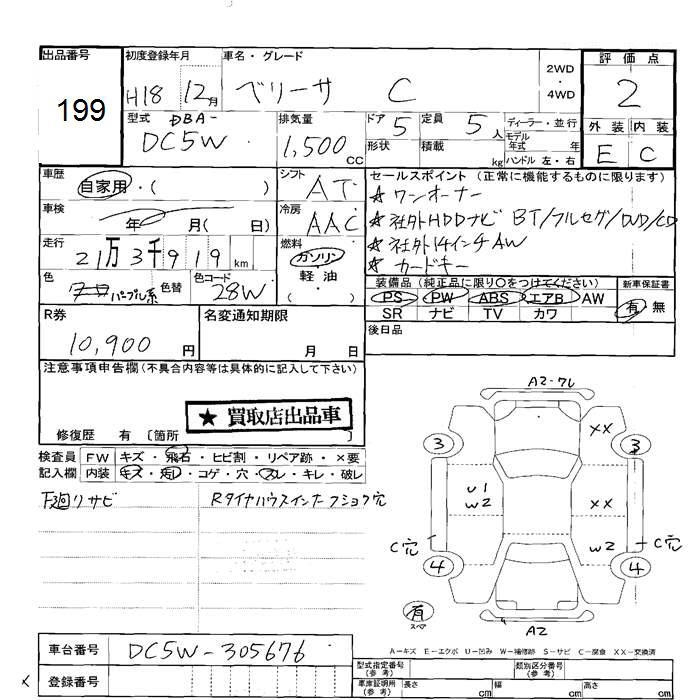 出品番号 初度登録年月 車名・グレード 2WD 評価点
199 H18 12月 ベリーサ C ・4WD 2
型式 DBA- 排気量 ドア 5 定員 5人 ディーラー・並行 外装 内装
DC5W 1,500cc 形状 積載 kg モデル年式 年 E C
ハンドル 左・右
車歴 自家用・( ) シフト AT セールスポイント (正常に機能するものに限ります)
★ ワンオーナー
車検 年 月( 日) 冷房 AAC ★ 社外HDDナビ BT/フルセグ/DVD/CD
走行 21万3千919km 燃料 ガソリン ★ 社外14インチAW
軽油 ( ) ★ カードキー
色 パープル系 色替 色コード 28W
装備品 (純正品に限り○をつけてください) 新車保証書
PS PW ABS エアB AW 有・無
SR ナビ TV カワ
R券 10,900円 名変通知期限 月 日 後日品
注意事項申告欄(不具合内容等は具体的に記入して下さい)
★ 買取店出品車
修復歴 有 〔箇所 〕
検査員 FW キズ・飛石・ヒビ割・リペア跡・×要
記入欄 内装 キズ・汚れ・コゲ・穴・スレ・キレ・破レ
下廻りサビ Rタイヤハウスインナーフショク穴
A2・フレ
3 XX 3
U1
W2 XX
C穴 W2 C穴
4 4
有
スペア
A2
A-キズ E-エクボ U-凹み W-補修跡 S-サビ C-腐食 XX-交換済
車台番号 DC5W-305676
型式指定番号(参考) 類別区分番号(参考)
登録番号 車庫証明用(参考) 長さ cm 幅 cm 高さ cm